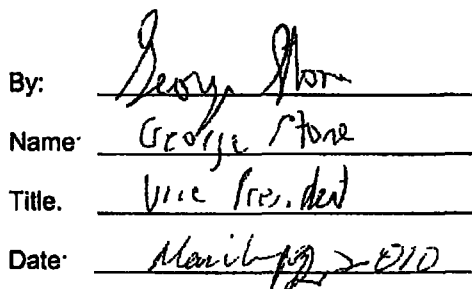 By: George Stone
Name· George Stone
Title. Vice President
Date· March, 2010